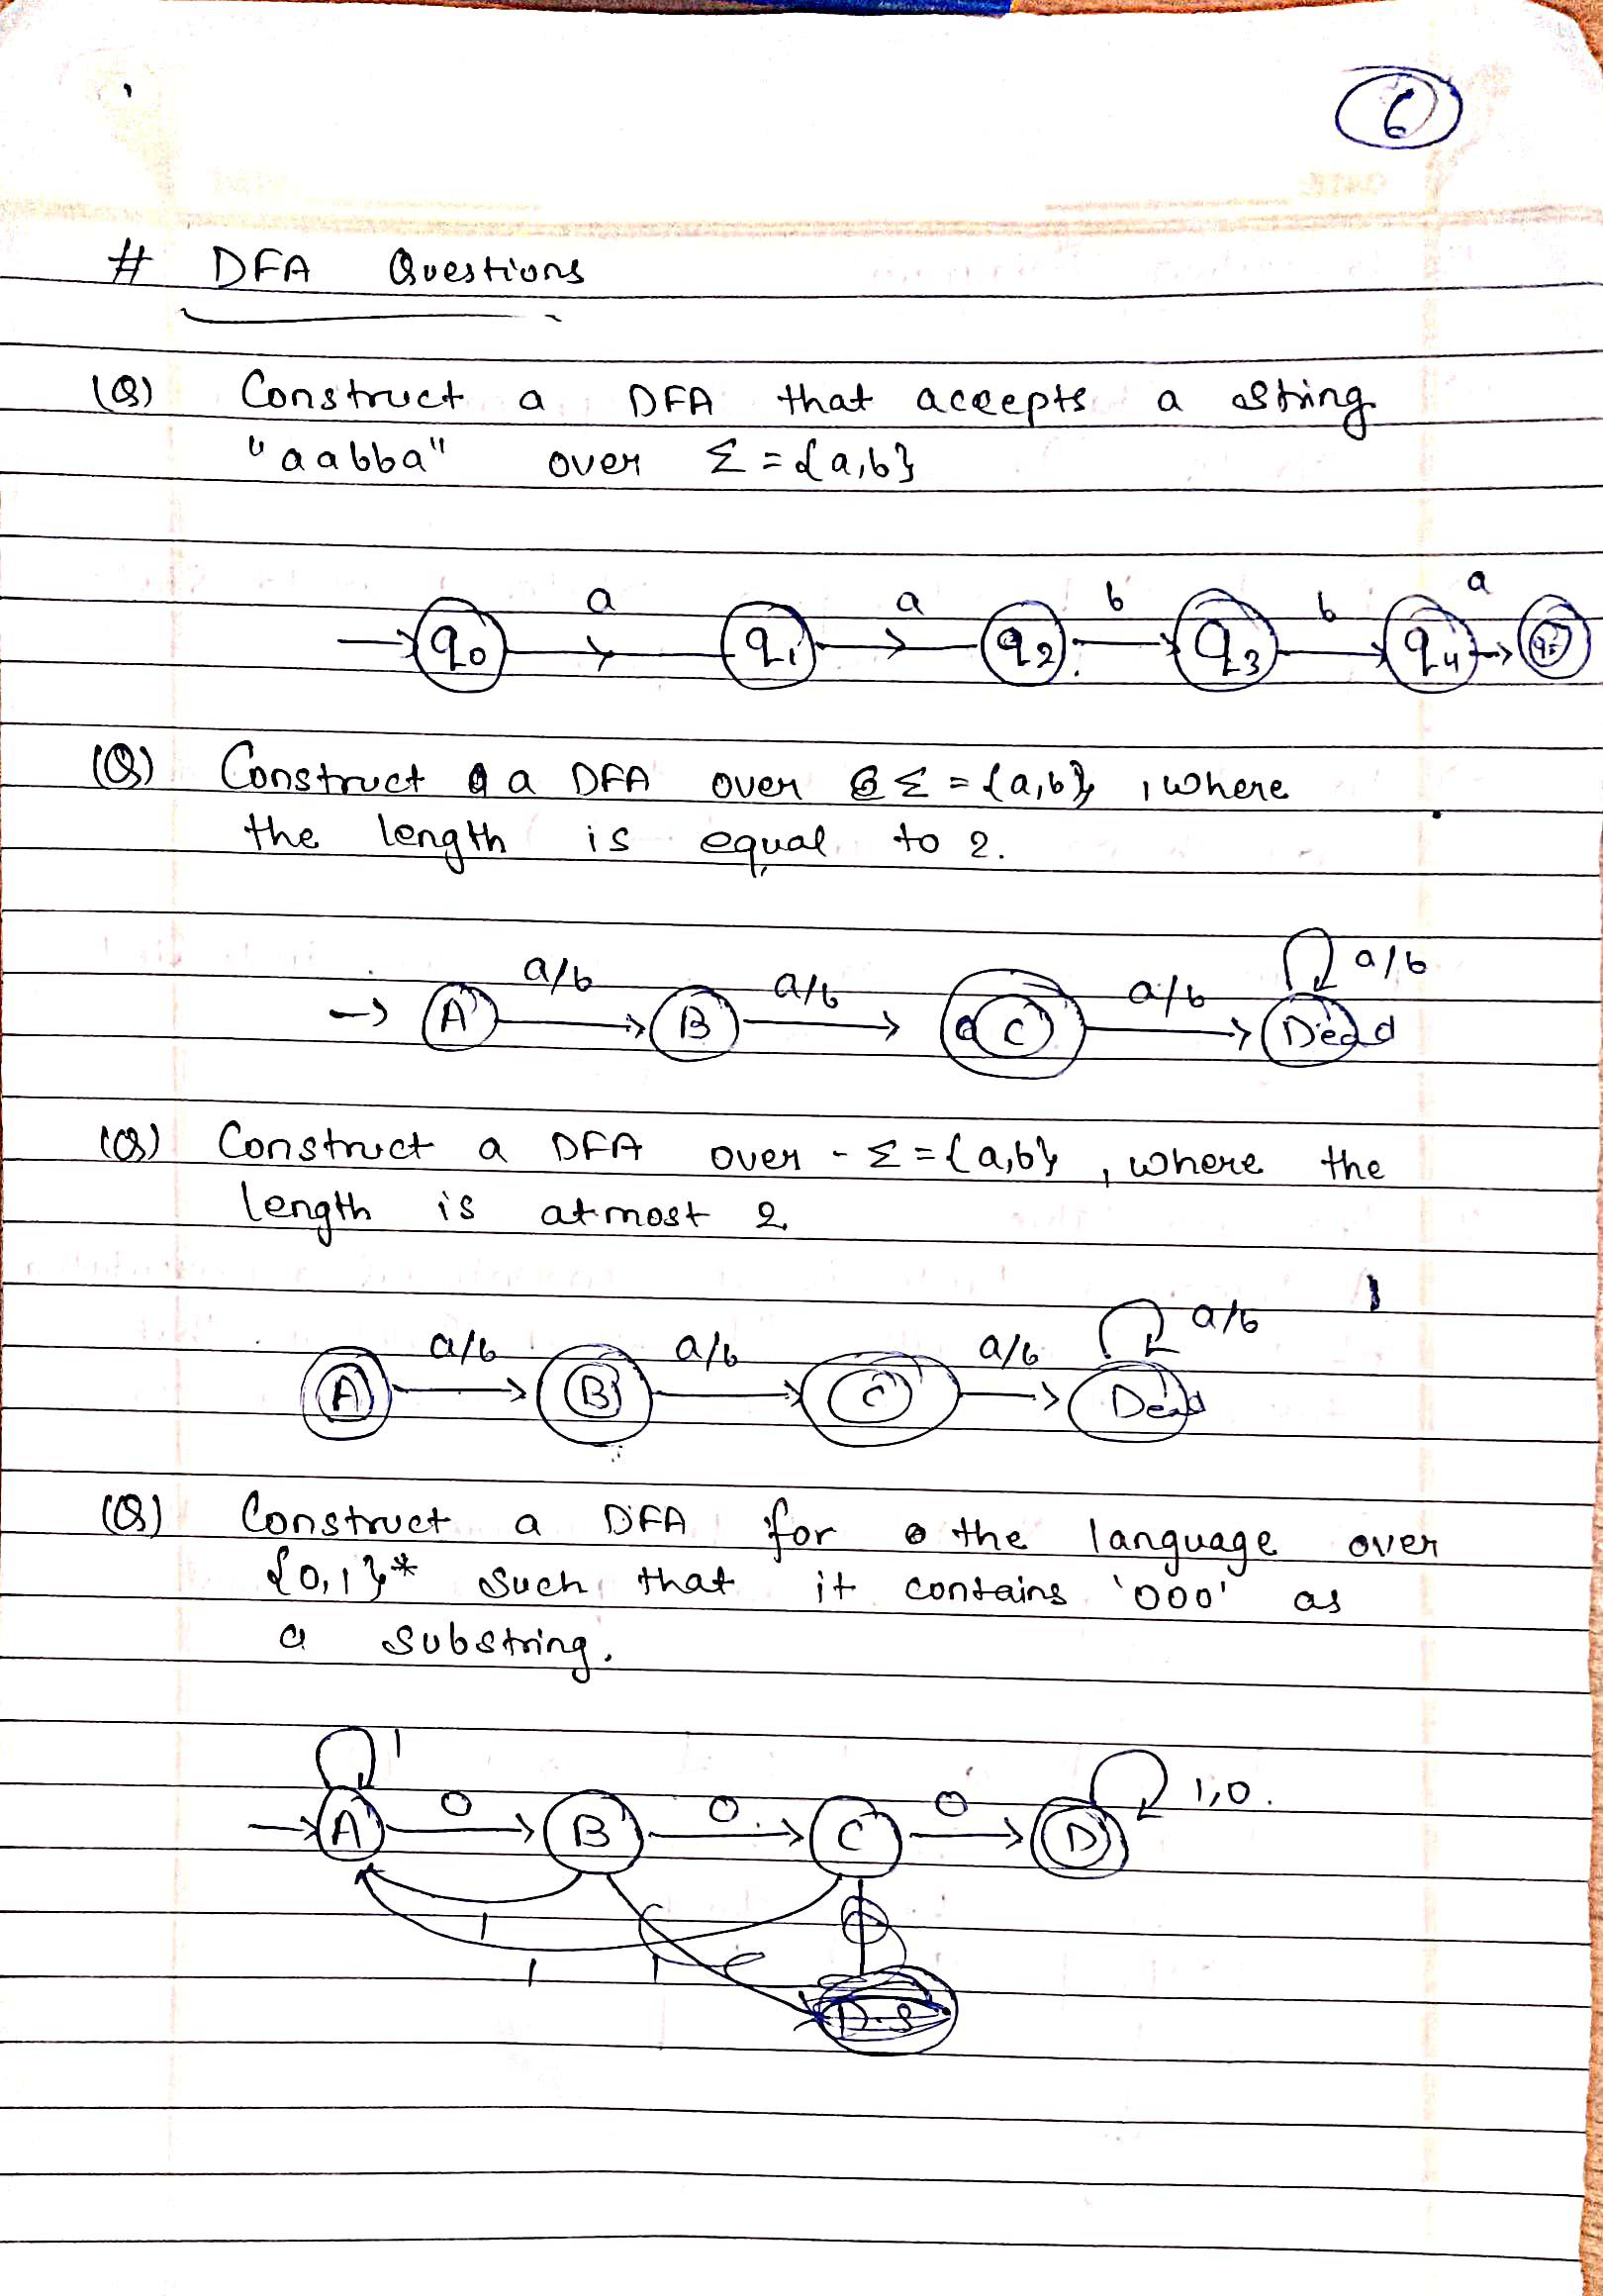 6
# DFA Questions
(Q) Construct a DFA that accepts a string
"aabba" over Σ = {a,b}
a a b b a
q0 q1 q2 q3 q4
(Q) Construct a DFA over Σ = {a,b}, where
the length is equal to 2.
a/b a/b a/b a/b
A B C Dead
(Q) Construct a DFA over - Σ = {a,b}, where the
length is atmost 2
a/b a/b a/b a/b
A B C Dead
(Q) Construct a DFA for the language over
{0,1}* such that it contains '000' as
a substring.
1 0 0 0 1,0.
A B C D
1
1 1
D.S